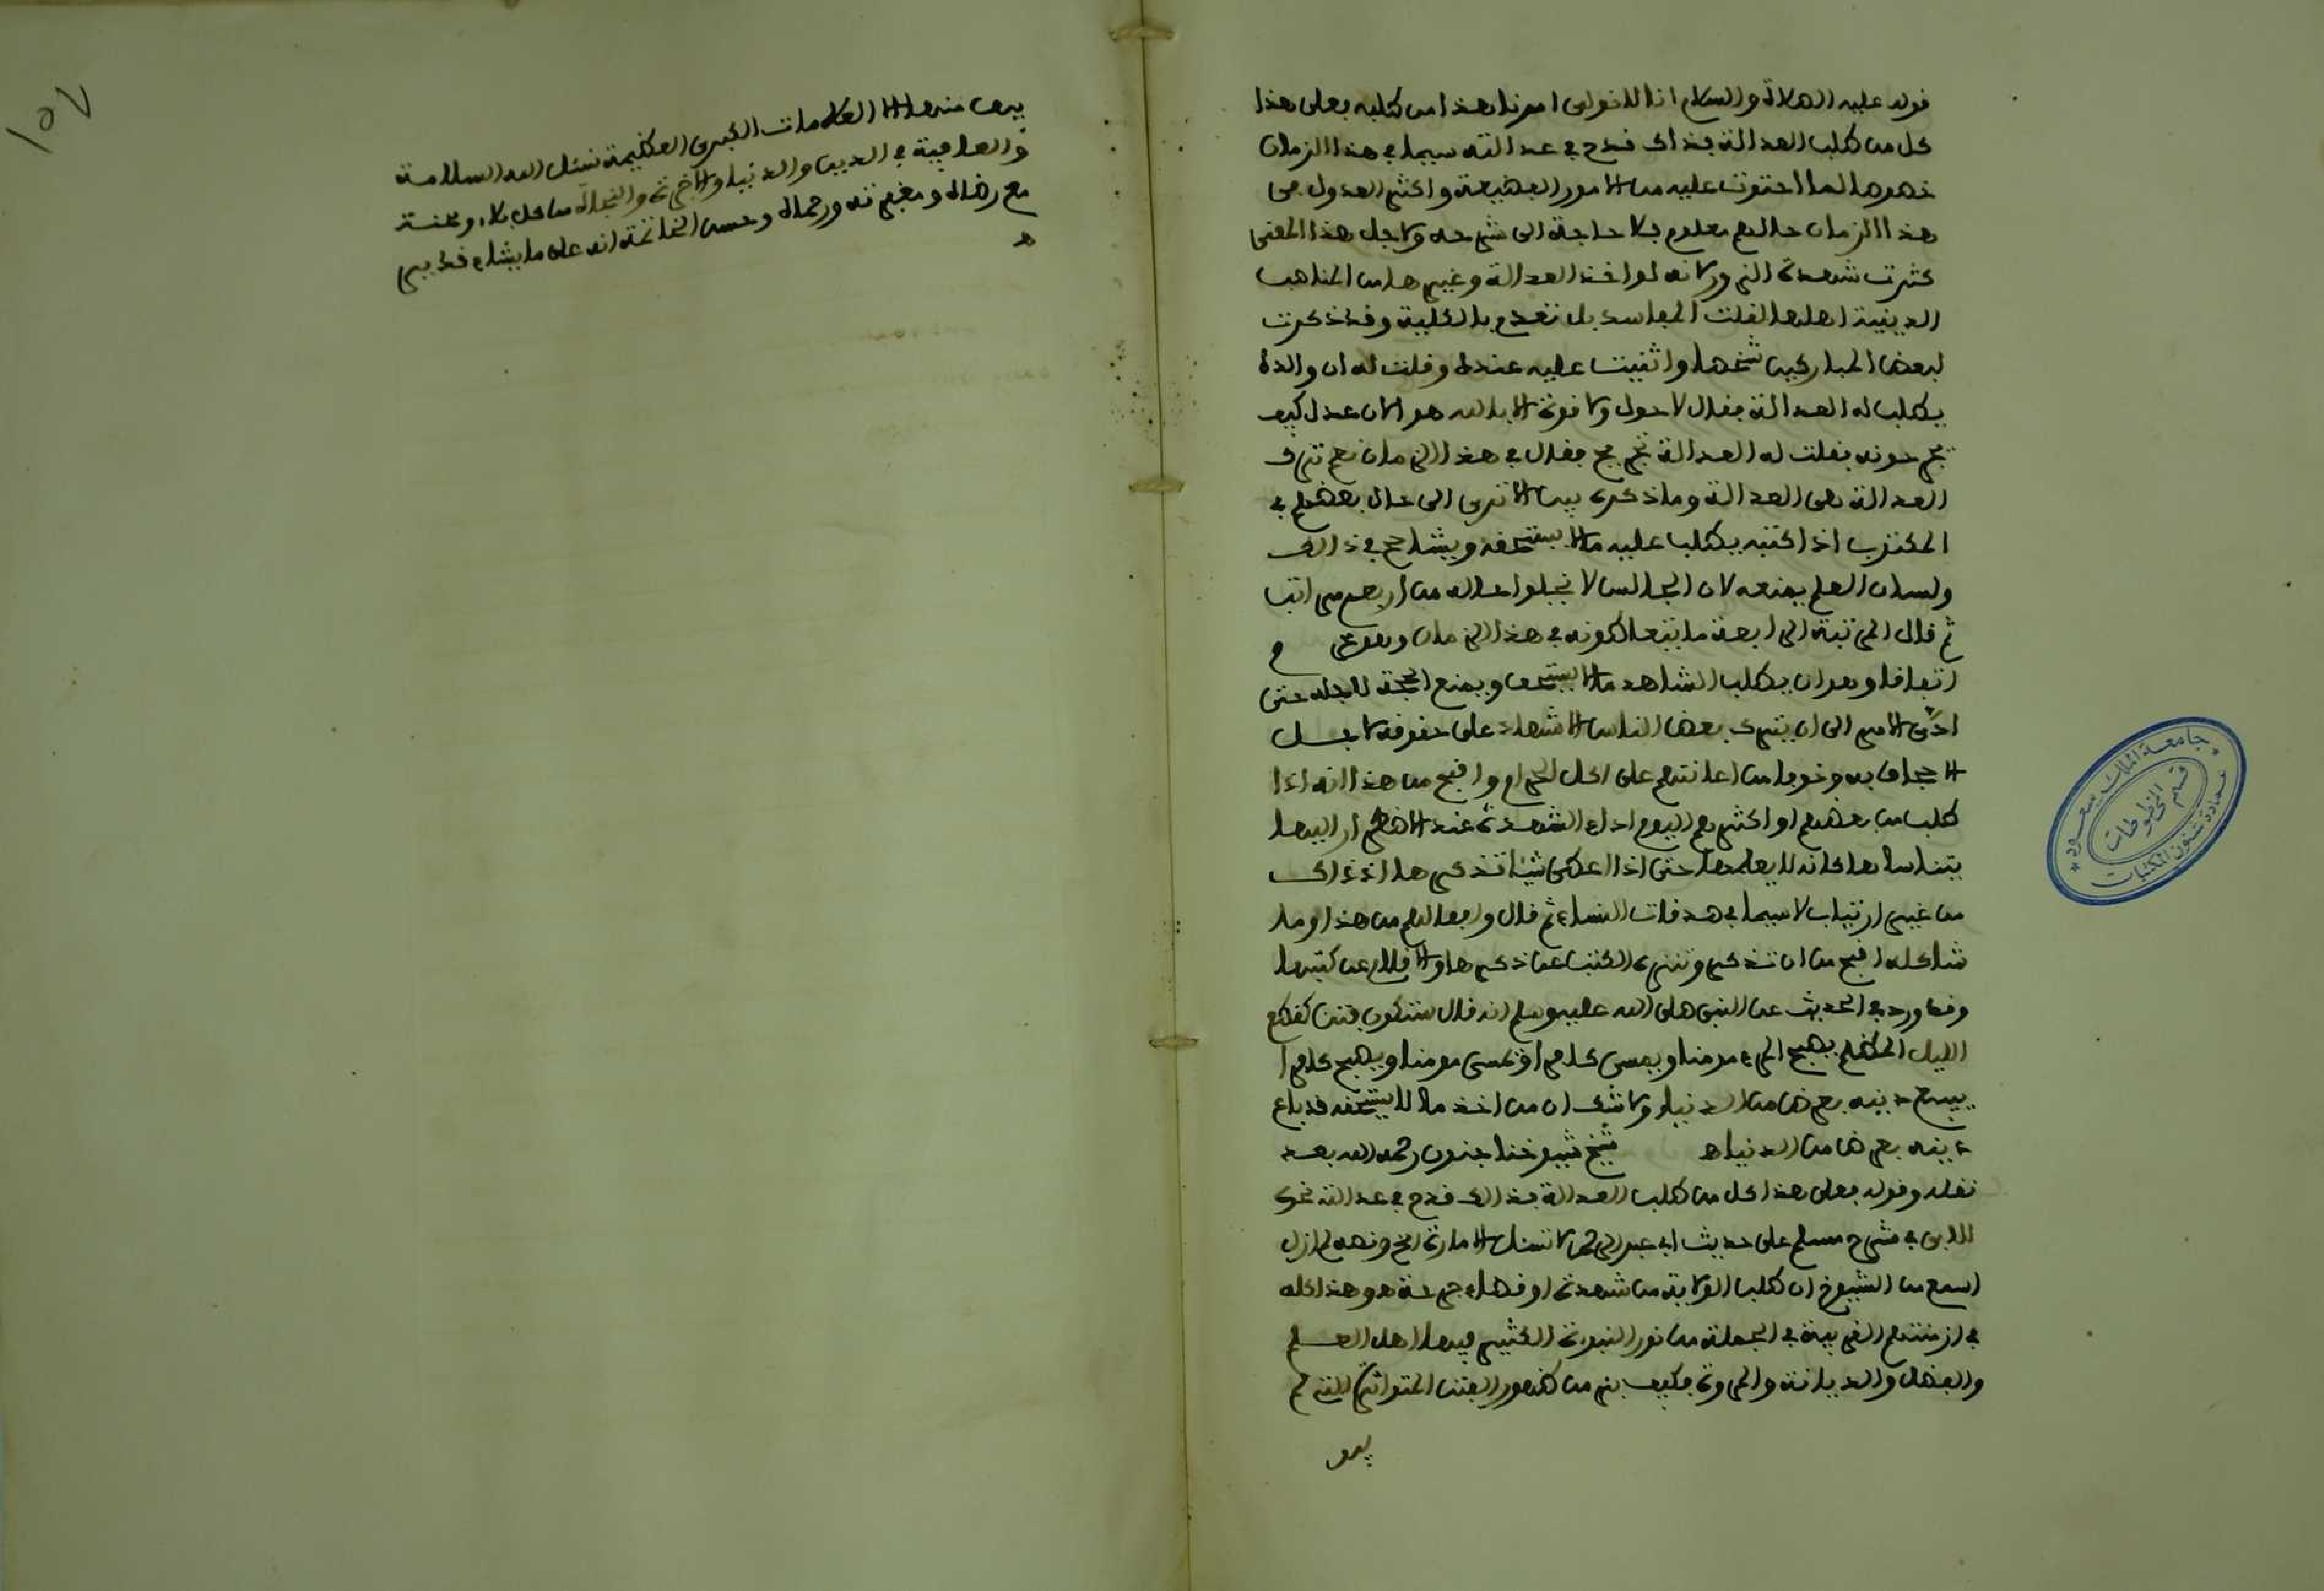 قوله عليه الصلاة والسلام انا لا نولي امرنا هذا من طلبه فعلى هذا
كل من طلب العدالة فذاك قدح في عدالته سيما في هذا الزمان
خصوصا لما احتوت عليه من الامور الفضيعة واكثر العدول في
هذا الزمان حالهم معلوم فلا حاجة الى شرحه ولاجل هذا المعنى
كثرت شهدة الزور لانه لو اخذ العدالة وغيرها من المناصب
الدينية اهلها لقلت المفاسد بل تعدم بالكلية وقد ذكرت
لبعض المباركين شخصا واثنيت عليه عنده وقلت له ان والده
يطلب له العدالة فقال لا حول ولا قوة الا بالله هو الان عدل كيف
تجرحونه فقلت له العدالة تجريح فقال في هذا الزمان نعم ترك
العدالة هي العدالة وما ذكره بين الا ترى الى حال بعضهم في
المكتوب اذا كتبه يطلب عليه ما لا يستحقه ويشاحح في ذلك
ولسان العلم يمنعه لان المجالس لا تخلوا حاله من اربع مراتب
ثم قال المرتبة الرابعة ما يفعلونه في هذا الزمان وهو محرم
اتفاقا وهو ان يطلب الشاهد ما لا يستحق ويمنع الحجة لاجله حتى
ادى الامر الى ان يترك بعض الناس الاشهاد على حقوقه لاجل
الاجحاف به وخوفا من اعانتهم على اكل الحرام واقبح من هذا انه اذا
طلب من بعضهم او اكثرهم اليوم اداء الشهدة عند الاضطرار اليها
يتناساها كانه لا يعلمها حتى اذا اعطي شيئا تذكرها اذ ذاك
من غير ارتياب لاسيما في صدقات النساء ثم قال وافعالهم من هذا وما
شاكله اقبح من ان تذكر وتنزه الكتب عن ذكرها والاقلام عن كتبها
وقد ورد في الحديث عن النبي صلى الله عليه وسلم انه قال ستكون فتن كقطع
الليل المظلم يصبح المرء مومنا ويمسي كافرا او يمسي مومنا ويصبح كافرا
يبيع دينه بعرض من الدنيا ولا شك ان من اخذ ما لا يستحقه قد باع
دينه بعرض من الدنيا ه شيخ شيوخنا جنون رحمه الله بعد
نقله وقوله فعلى هذا كل من طلب العدالة فذلك قدح في عدالته نحوه
للابي في شرح مسلم على حديث ابي عبد الرحمن لا تسئل الامارة الخ ونصه لم ازل
اسمع من الشيوخ ان طلب الولاية من شهدة او قضاء جرحة ه وهذا كله
في ازمنتهم القريبة في الجملة من نور النبوة الكثير فيها اهل العلم
والفضل والديانة والمروة فكيف بزمن ظهور الفتن المتواترة التي لم
يبق
يبق منها الا العلامات الكبرى العظيمة نسئل الله السلامة
والعافية في الدين والدنيا والاخرة والنجاة من كل بلاء ومحنة
مع رضاه ومغفرته ورحماه وحسن الخاتمة انه على ما يشاء قدير
ه
١٥٧
جامعة الملك سعود
عمادة شئون المكتبات
قسم المخطوطات